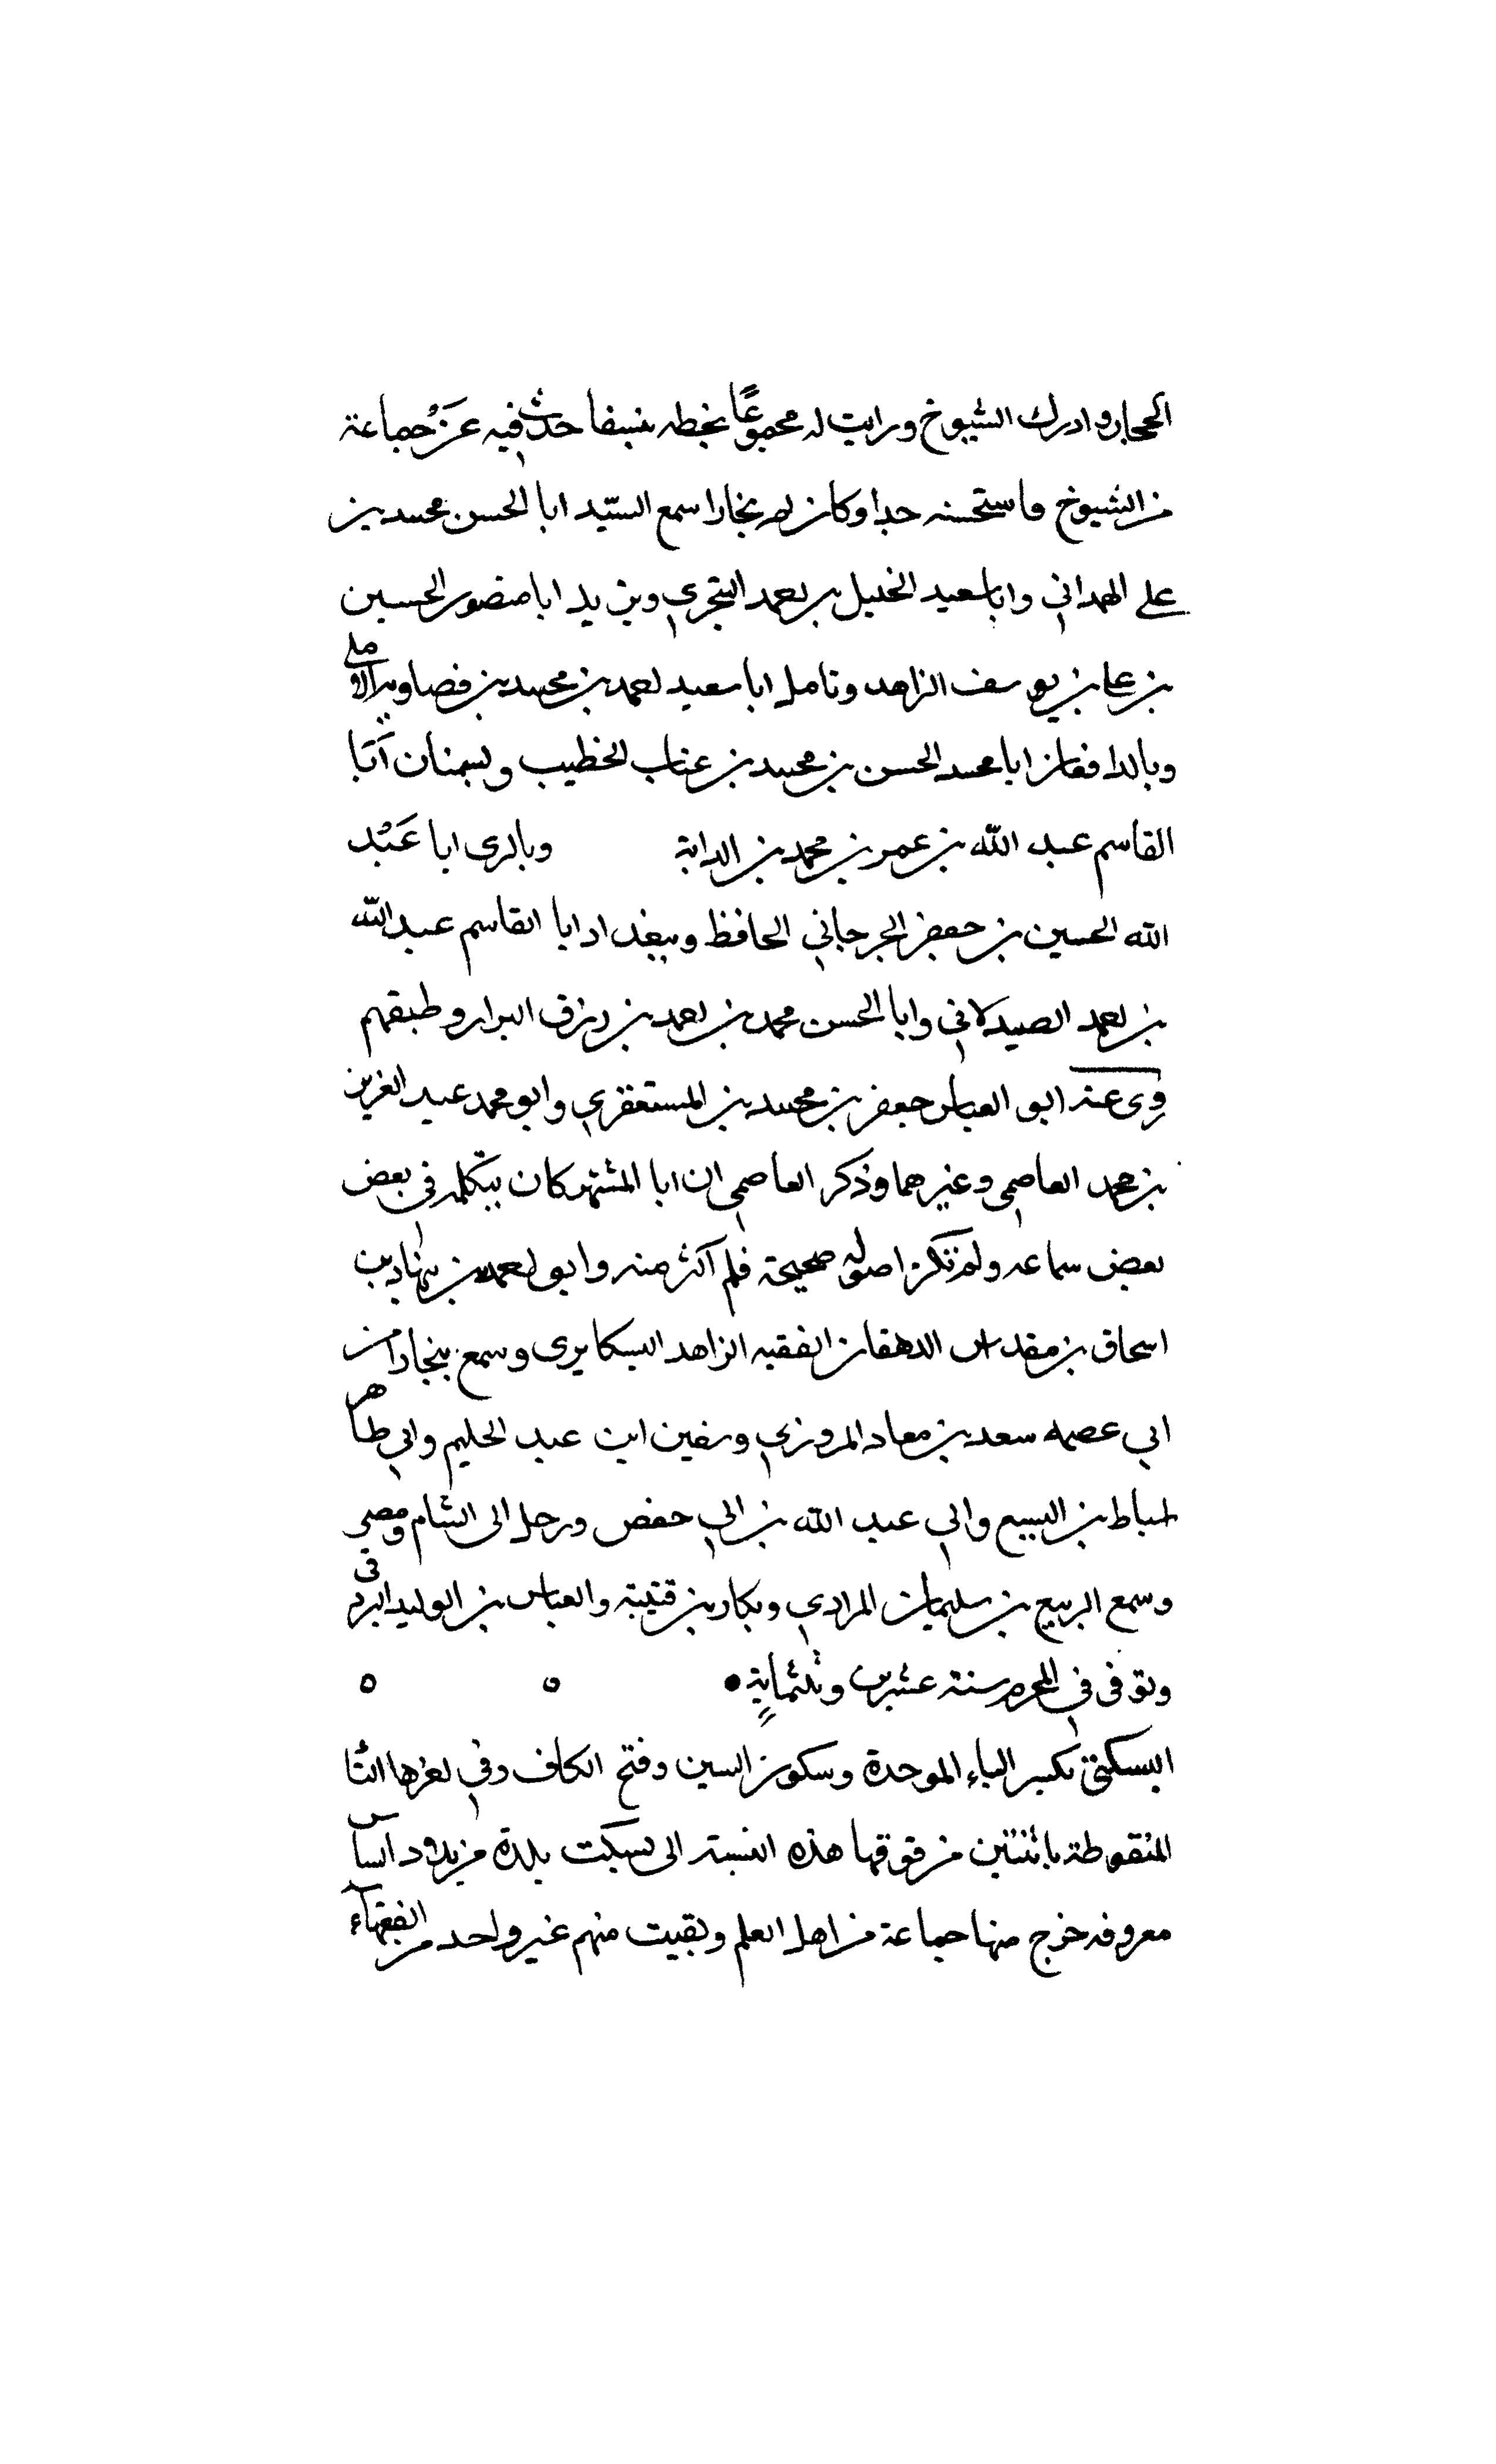 الحجاز وادرك الشيوخ ورايت له مجموعًا بخطه بنسفا حدث فيه عن جماعة
من الشيوخ فاستحسنه جدا وكان له بخارا سمع السيّد ابا الحسن محمد بن
علي الهمداني وابا سعيد الخليل بن احمد السجزي وبن يد ابا منصور الحسين
بن علي بن يوسف الزاهد وبامل ابا سعيد احمد بن محمد بن الاملي
وبالدامغان ابا محمد الحسن بن محمد بن عتاب الخطيب وبسمنان ابا
القاسم عبد الله بن عمر بن محمد بن الداية وبالري ابا عَبْد
الله الحسين بن جعفر الجرجاني الحافظ وببغداد ابا القاسم عبد الله
بن احمد الصيدلاني وابا الحسن محمد بن احمد بن رزق البزاز وطبقهم
روى عنه ابو العباس جعفر بن محمد بن المستغفري وابو محمد عبد العزيز
بن محمد العاصمي وغيرهما وذكر العاصمي ان ابا المشتهر كان يتكلم في بعض
بعض سماعه ولم تكن اصوله صحيحة فلم اكثر منه وابو احمد بن
اسحاق بن مقداس الدهقان الفقيه الزاهد البسكايري وسمع ببخارا من
ابي عصمه سعد بن معاد المروزي وسفين ابن عبد الحليم وابي طاهر
اسباط بن اليسع وابي عبد الله بن ابي حفص ورحل الى الشام ومصر
وسمع الربيع بن سليمان المرادي وبكار بن قتيبة والعباس بن الوليد البيروتى
وتوفى في المحرم سنة عشرين وثلثماية
البسكتي بكسر الباء الموحدة وسكون السين وفتح الكاف وفي اخرها التا
المنقوطة باثنتين من فوقها هذه النسبة الى بسكت بلدة من بلاد الساس
معروفه خرج منها جماعة من اهل العلم ولقيت منهم غير واحد من الفقهاء